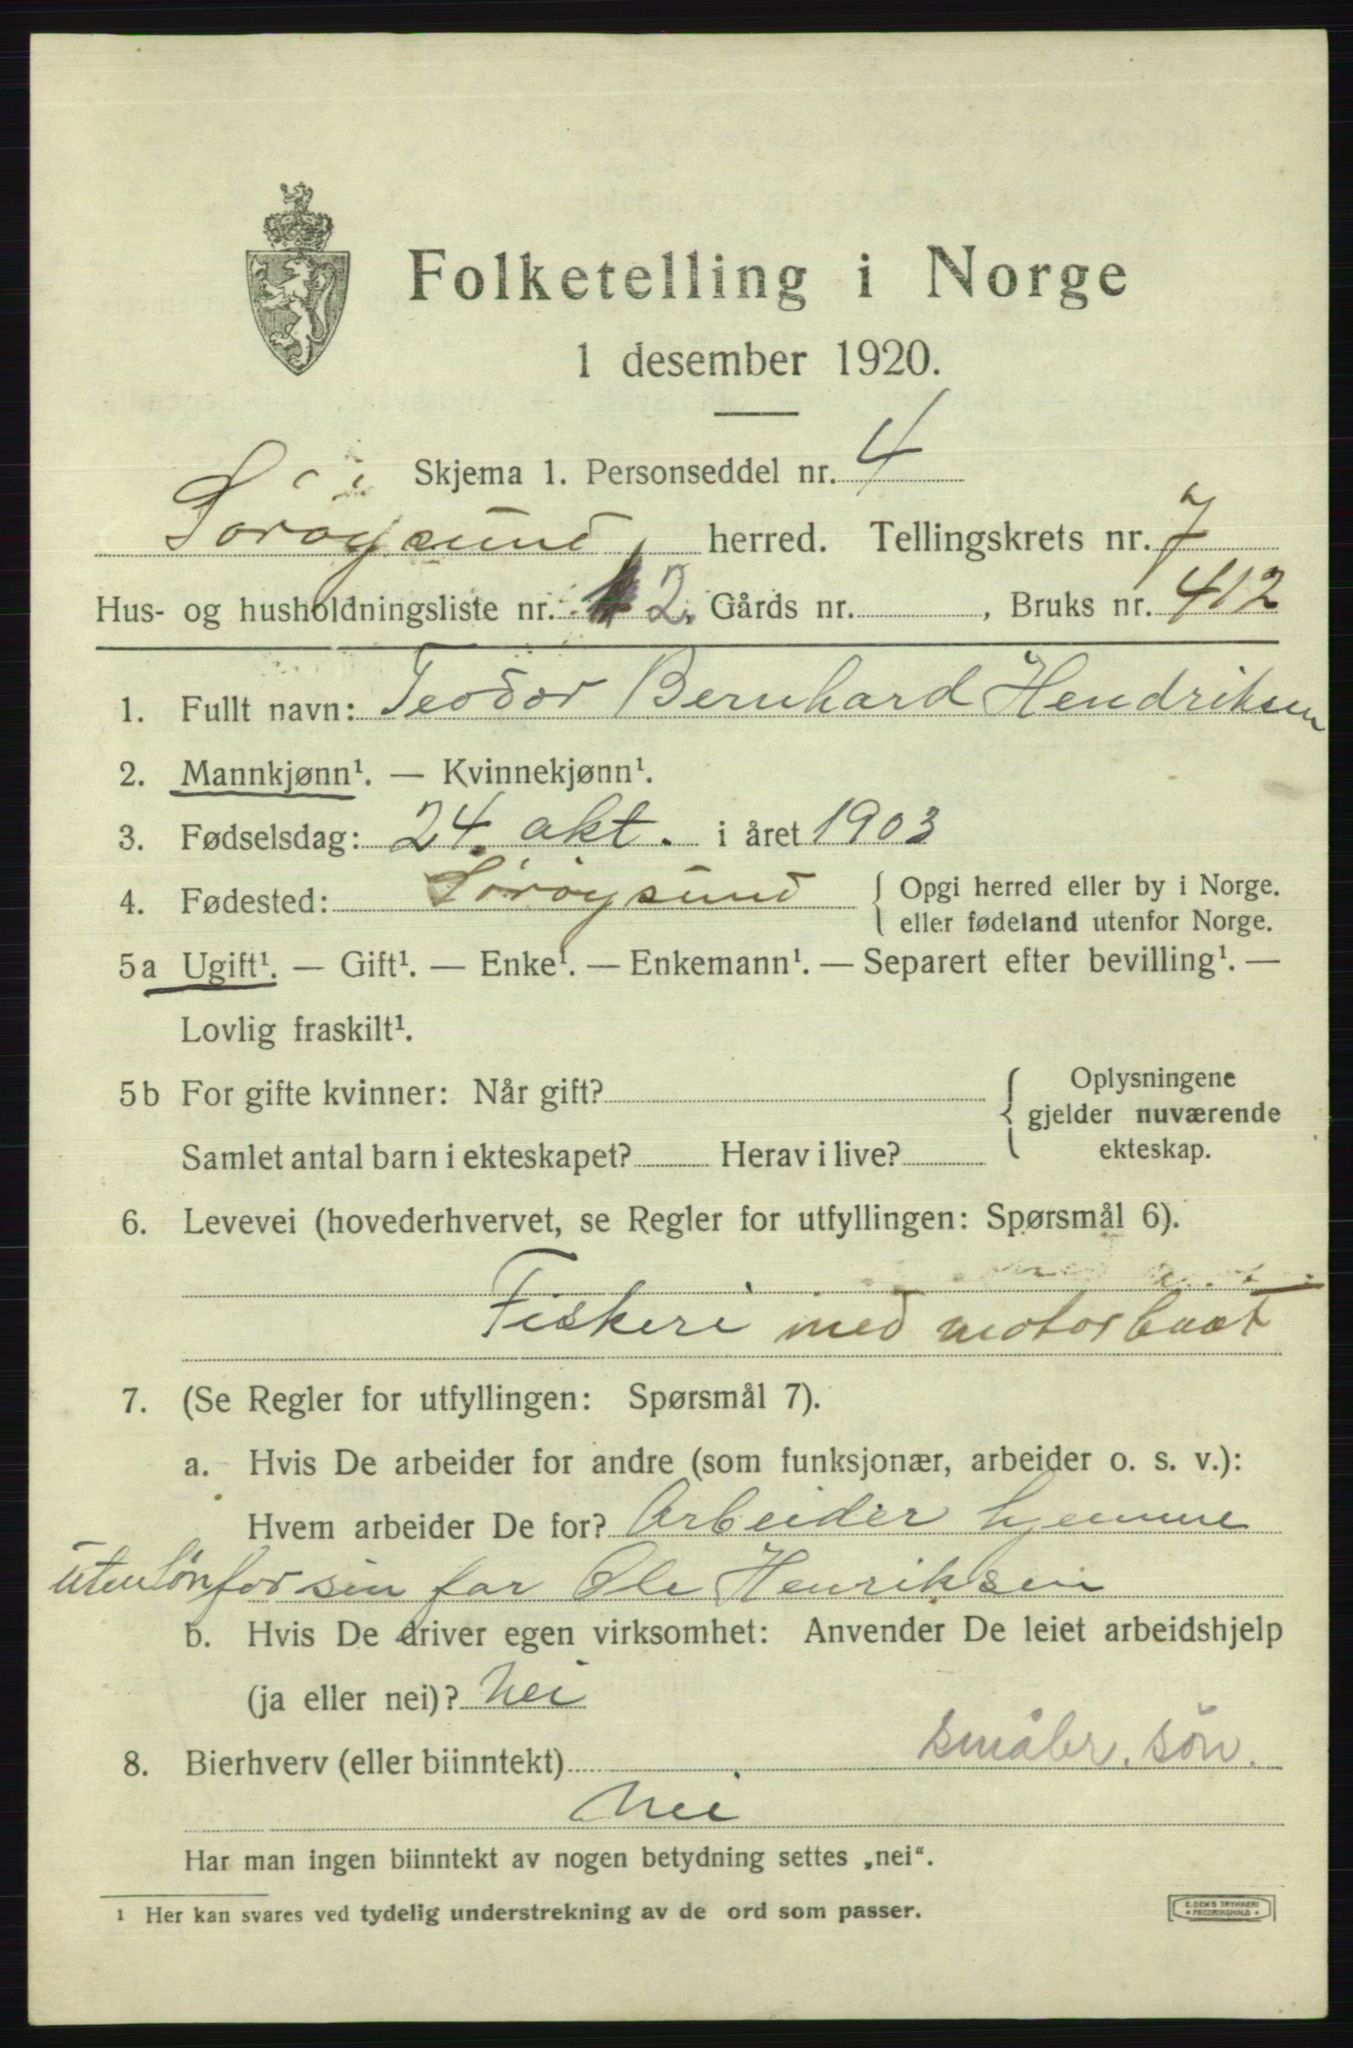 Folketelling i Norge
1 desember 1920.
Skjema 1. Personseddel nr. 4
Sørøysund herred. Tellingskrets nr. 7
Hus- og husholdningsliste nr. 2. Gårds nr. , Bruks nr. 412
1. Fullt navn: Teodor Bernhard Hendriksen
2. Mannkjønn¹. — Kvinnekjønn¹.
3. Fødselsdag: 24. okt. i året 1903
4. Fødested: Sørøysund { Opgi herred eller by i Norge.
eller fødeland utenfor Norge.
5a Ugift¹. — Gift¹. — Enke¹. — Enkemann¹. — Separert efter bevilling¹. —
Lovlig fraskilt¹.
5b For gifte kvinner: Når gift?
Samlet antal barn i ekteskapet? Herav i live?
Oplysningene
gjelder nuværende
ekteskap.
6. Levevei (hovederhvervet, se Regler for utfyllingen: Spørsmål 6).
Fiskeri med motorbaat
7. (Se Regler for utfyllingen: Spørsmål 7).
a. Hvis De arbeider for andre (som funksjonær, arbeider o. s. v.):
Hvem arbeider De for? Arbeider hjemme
uten lön for sin far Ole Henriksen
b. Hvis De driver egen virksomhet: Anvender De leiet arbeidshjelp
(ja eller nei)? Nei
småbr. sön.
8. Bierhverv (eller biinntekt)
Nei
Har man ingen biinntekt av nogen betydning settes „nei“.
¹ Her kan svares ved tydelig understrekning av de ord som passer.
E. SEM'S TRYKKERI
* FREDRIKSHALD *